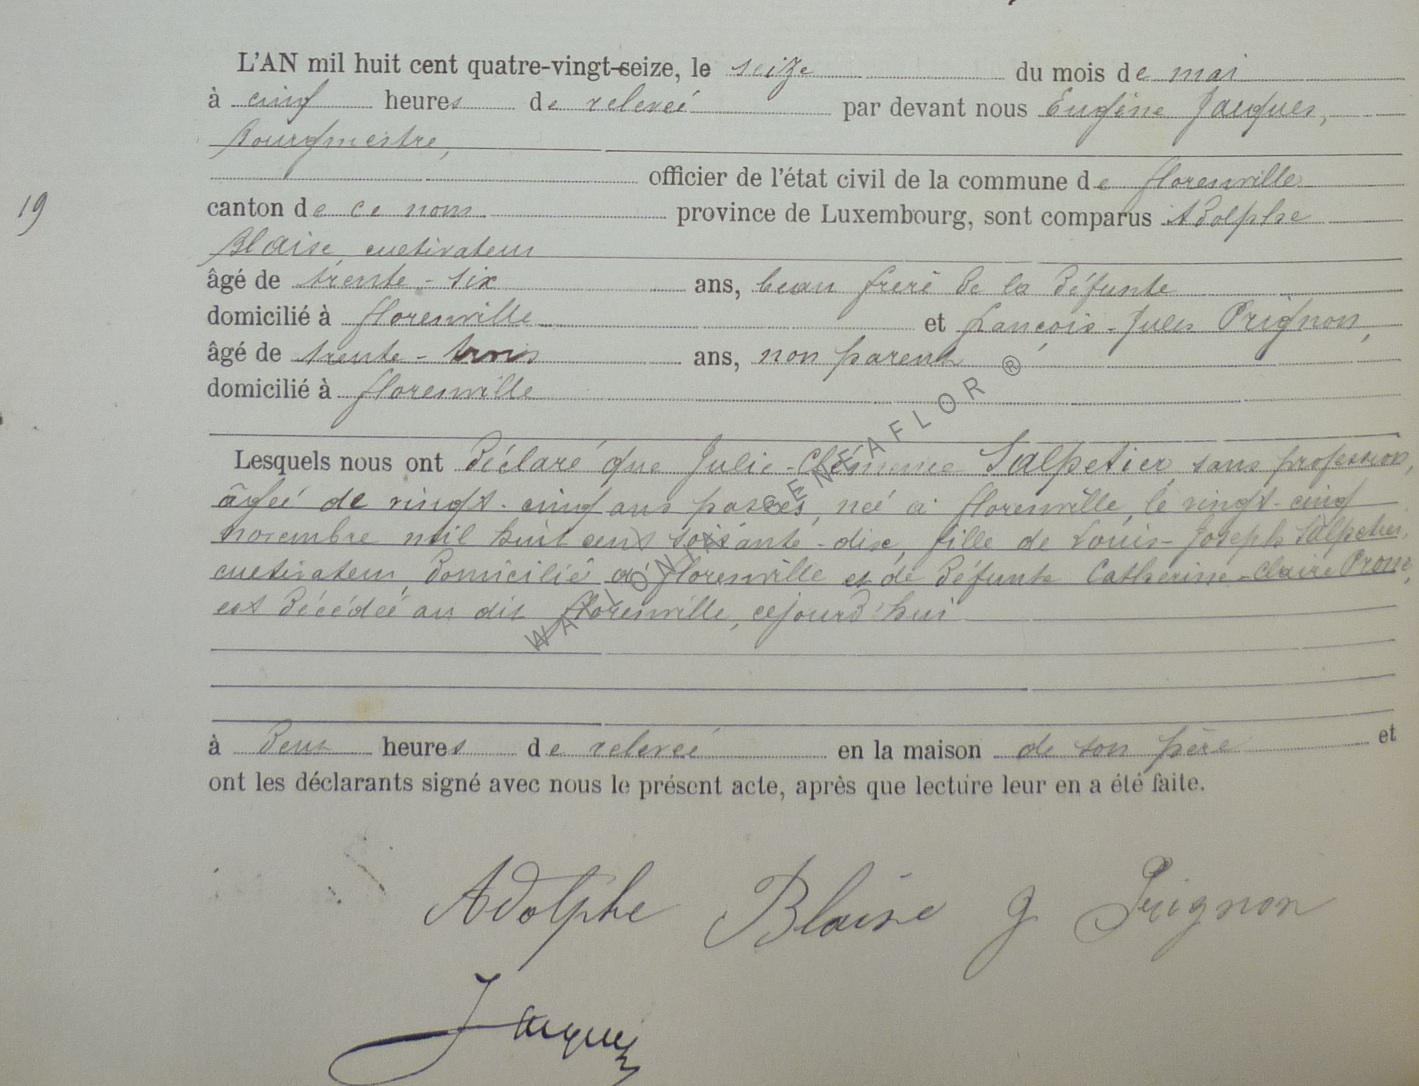 L'AN mil huit cent quatre-vingt-seize, le seize du mois de mai
à cinq heures de relevée par devant nous Eugène Jacques,
bourgmestre,
officier de l'état civil de la commune de florenville
19
canton de ce nom province de Luxembourg, sont comparus Adolphe
Blaise, cultivateur
âgé de trente-six ans, beau frère de la défunte
domicilié à florenville et françois-Jules Prignon,
âgé de trente-trois ans, non parent
domicilié à florenville
Lesquels nous ont déclaré que Julie-Clémence Salpetier, sans profession,
âgée de vingt-cinq ans passés, née à florenville, le vingt-cinq
novembre mil huit cent soixante-dix, fille de Louis-Joseph Salpetier,
cultivateur, domicilié à florenville et de défunte Catherine-Claire
est décédée au dit florenville, cejourd'hui
à deux heures de relevée en la maison de son père et
ont les déclarants signé avec nous le présent acte, après que lecture leur en a été faite.
Adolphe Blaise J Prignon
Jacques
WALLONIE GENEAFLOR ®